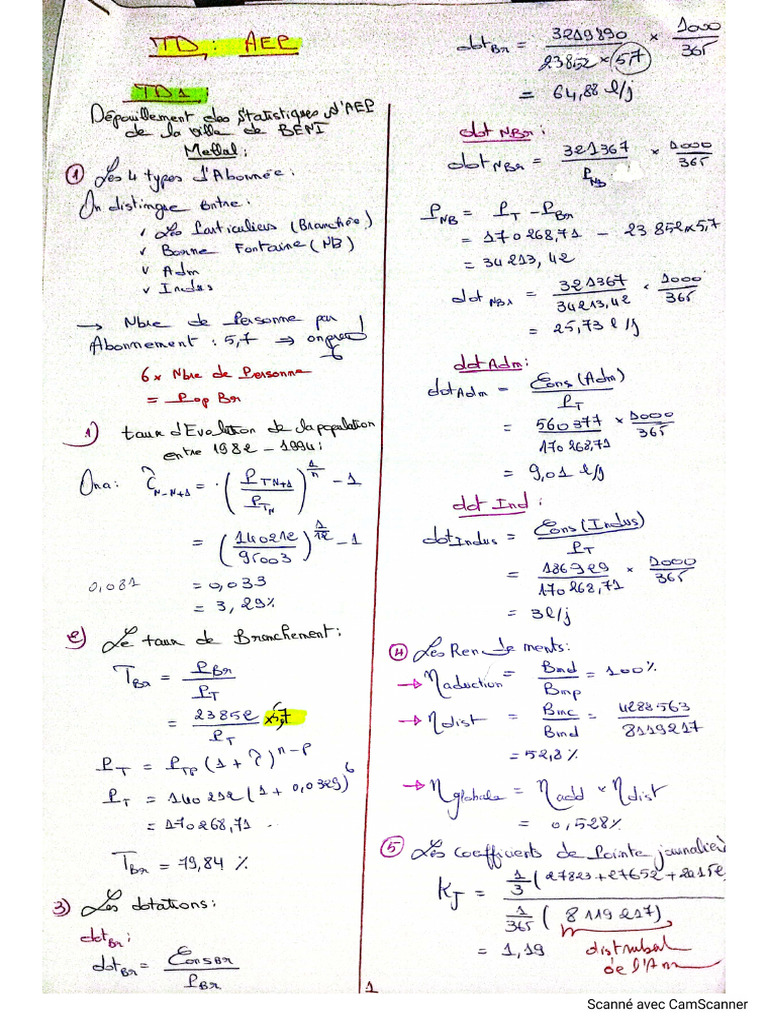 TD : AEP
TD1 :
Dépouillement des Statistiques d'AEP
de la ville de BENI
Mellal :
① Les 4 types d'Abonnée :
On distingue Entre :
✓ Les Particuliers (Branchée)
✓ Borne Fontaine (NB)
✓ Adm
✓ Indus
→ Nbre de Personne par
Abonnement : 5,7 ⇒ on prend
6
6 × Nbre de Personne
= Pop Br
1) taux d'Evolution de la population
entre 1982 - 1994 :
Ona : τ_{N-N+1} = (P_{TN+1} / P_{TN})^{1/n} - 1
= (140212 / 95003)^{1/12} - 1
0,081 = 0,033
= 3,29%
2) Le taux de Branchement :
T_{Br} = P_{Br} / P_T
= 23852 ×5,7 / P_T
P_T = P_{TP} (1 + τ)^{n-p}
P_T = 140212 (1 + 0,0329)^6
= 170268,71
T_{Br} = 79,84 %
3) Les dotations :
dot_{Br} :
dot_{Br} = Cons_{BR} / P_{Br}
dot_{Br} = 3219890 / (23852 × 5,7) × 1000 / 365
= 64,88 l/j
dot NBr :
dot_{NBr} = 321367 / P_{NB} × 1000 / 365
P_{NB} = P_T - P_{Br}
= 170268,71 - 23852×5,7
= 34213,42
dot_{NBr} = 321367 / 34213,42 × 1000 / 365
= 25,73 l/j
dot Adm :
dot_{Adm} = Cons (Adm) / P_T
= 560377 / 170268,71 × 1000 / 365
= 9,01 l/j
dot Ind :
dot_{Indus} = Cons (Indus) / P_T
= 186929 / 170268,71 × 1000 / 365
= 3 l/j
④ Les Rendements :
→ η_{aduction} = Bmd / Bmp = 100%
→ η_{dist} = Bmc / Bmd = 4288563 / 8119217
= 52,8 %
→ η_{globale} = η_{add} × η_{dist}
= 0,528%
⑤ Les coefficients de Pointe journalier
K_J = 1/3 (27823 + 27652 + 22152 / 1/365 (8119217)
= 1,19 distribué
de l'Ann
1
Scanné avec CamScanner